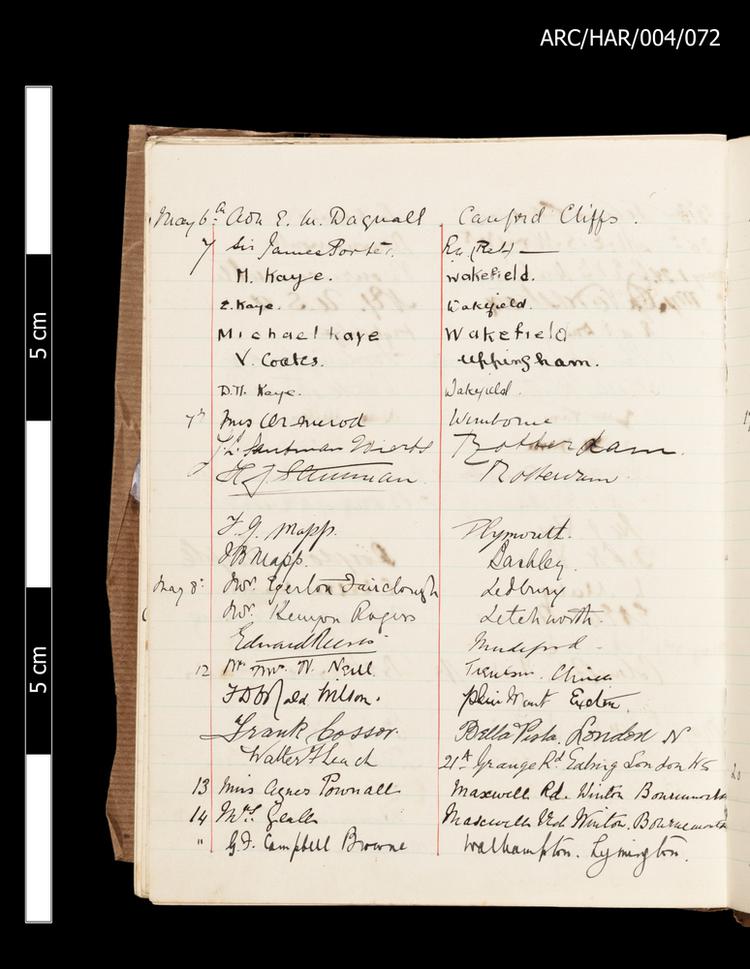 ARC/HAR/004/072
5 cm
5 cm
May 6th E. M. Dagnall Canford Cliffs.
7 Sir James Porter.
M. Kaye. Wakefield.
E. Kaye. Wakefield.
Michael Kaye Wakefield
V. Coates. Uppingham.
D.H. Kaye. Wakefield.
7th Miss Ormerod Wimborne
Rotterdam.
Rotterdam
F. G. Mapp. Plymouth.
J B Mapp. Bashley.
May 8: Mr. Egerton Fairclough Ledbury
Mr. Kenyon Rogers Letchworth.
Edward Mudeford
12 Mr & Mrs. W. Neill Tientsin. China
Wilson. Exeter.
Frank Cossor. Bella Vista, London N
Walter F Leach 21A Grange Rd. Ealing London W5
13 Miss Agnes Pownall Maxwell Rd. Winton Bournemouth
14 Mrs. Maxwell Rd Winton. Bournemouth
" G. F. Campbell Browne Walhampton. Lymington.